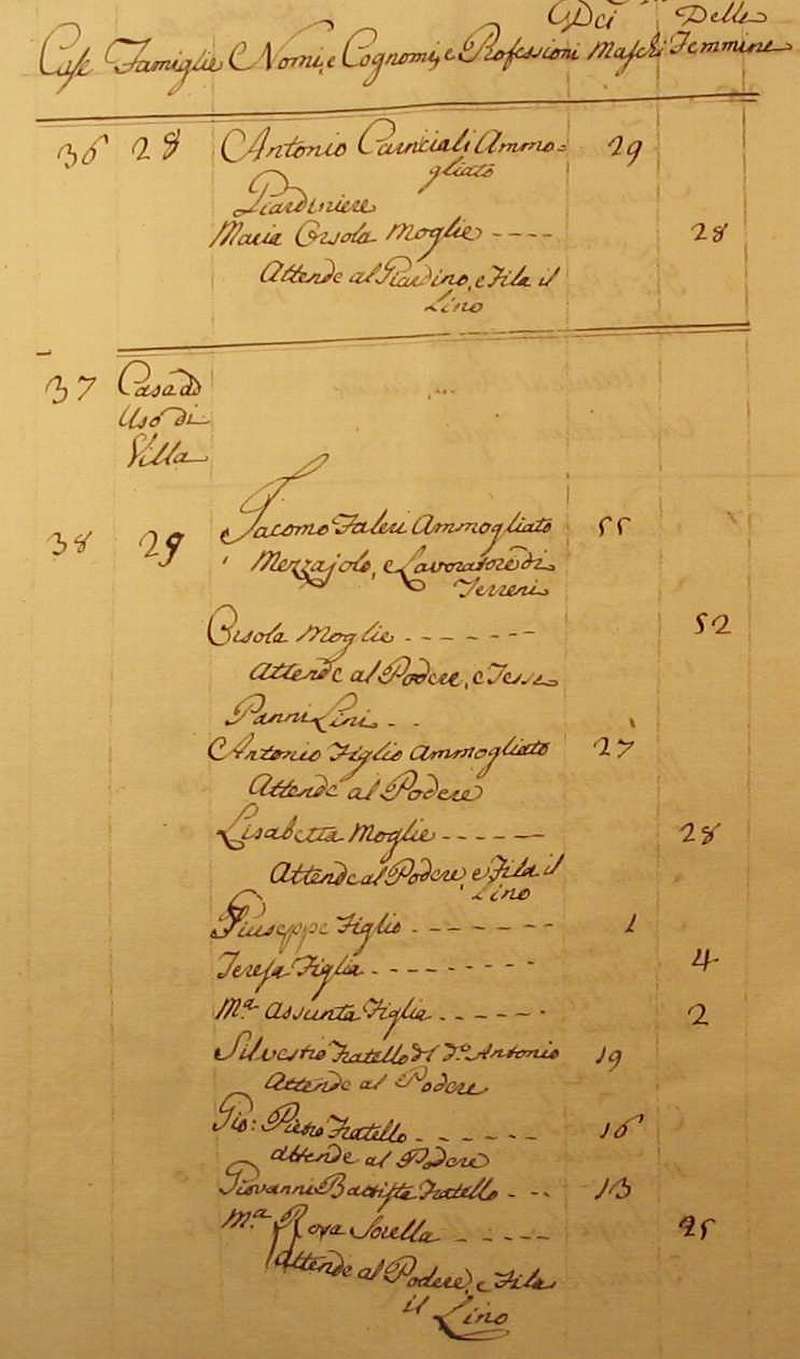 Dei Delle
Case Famiglie Nomi, e Cognomi, e Professioni Maschi Femmine
36 28 Antonio Ammo= 29
gliato
Giardiniere
Maria Orsola Moglie ---- 28
Attende al Giardino, e Fila il
Lino
37 Casa ad
Uso di
Villa
38 29 Jacomo Ammogliato 55
Mezzajolo, e Lavoratore di
Terreni
Orsola Moglie ------- 52
Attende al Podere, e Tesse
Panni Lini
Antonio Figlio Ammogliato 27
Attende al Podere
Lisabetta Moglie ------ 28
Attende al Podere e Fila il
Lino
Giuseppe Figlio ------- 1
Teresa Figlia --------- 4
Ma. Assunta Figlia ------ 2
Silvestro Fratello Antonio 19
Attende al Podere
Gio: Pietro Fratello ------ 16
attende al Podere
Giovanni Battista Fratello --- 13
Ma. Rosa Sorella ------ 25
Attende al Podere, e Fila
il Lino